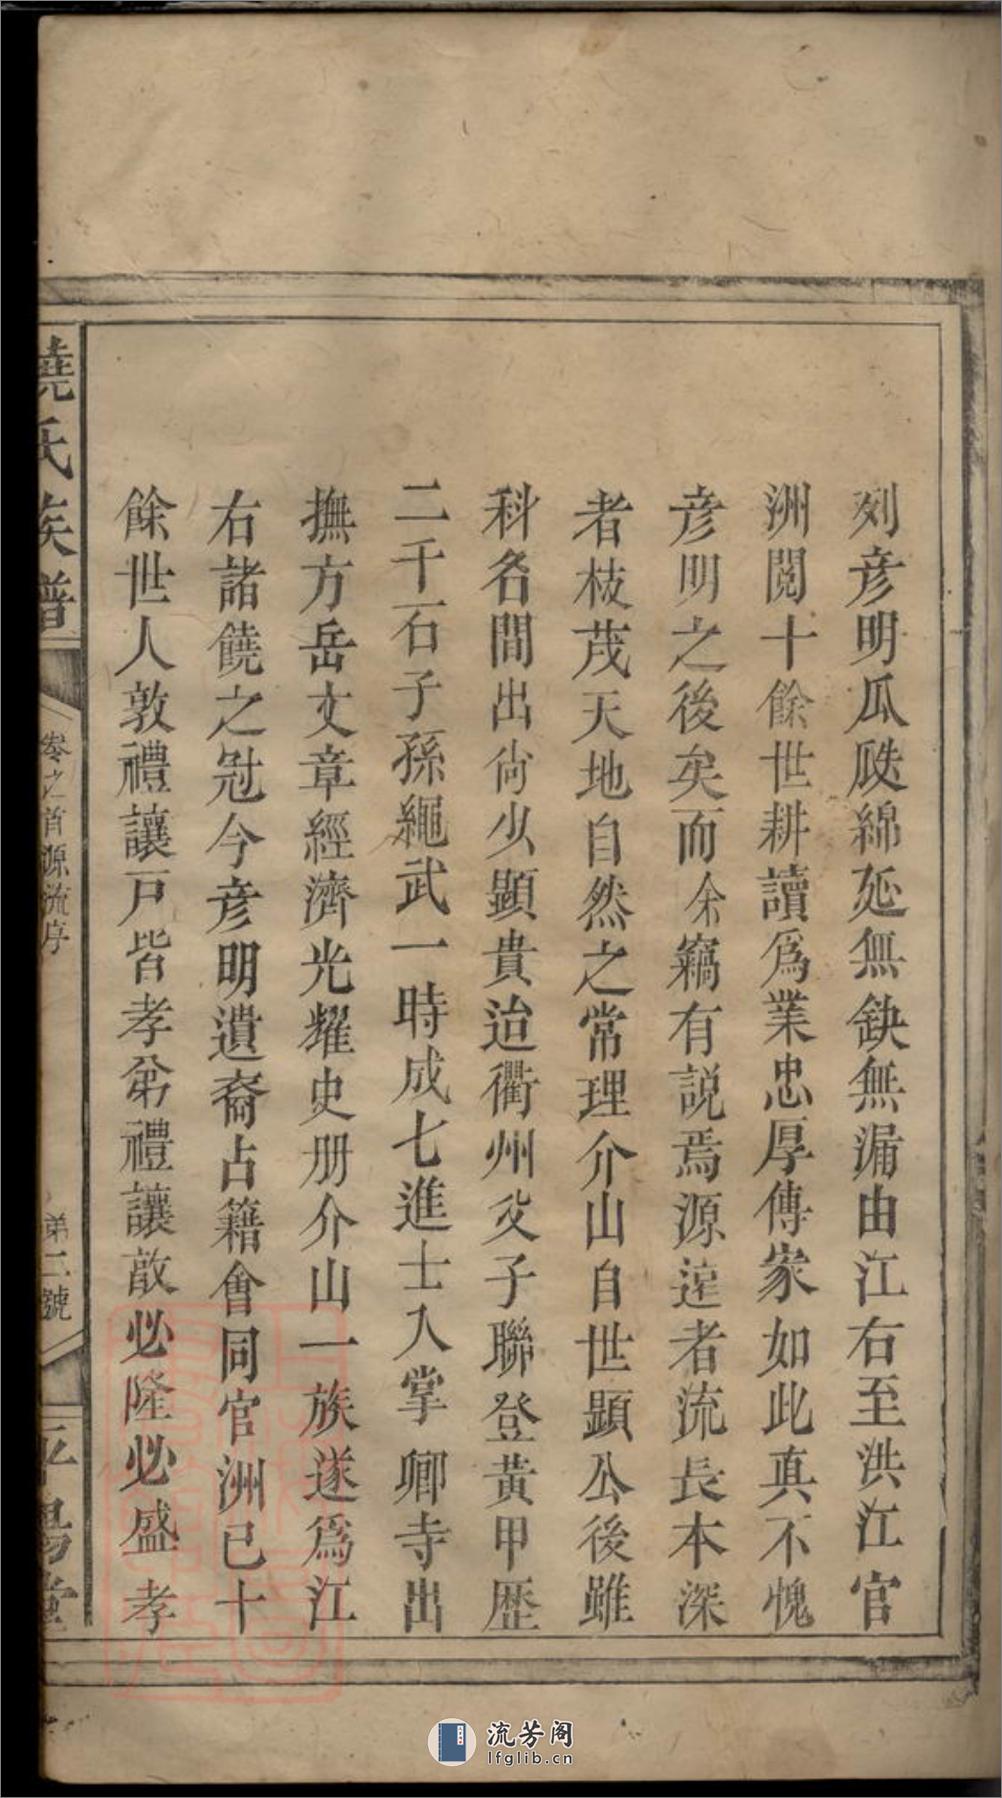 列彥明瓜瓞綿延無缺無漏由江右至洪江官
洲閱十餘世耕讀爲業忠厚傳家如此真不愧
彥明之後矣而余竊有説焉源遠者流長本深
者枝茂天地自然之常理介山自世顯公後雖
科名間出尙少顯貴迨衢州父子聯登黃甲歷
二千石子孫繩武一時成七進士入掌卿寺出
撫方岳文章經濟光耀史册介山一族遂爲江
右諸饒之冠今彥明遺裔占籍會同官洲已十
餘世人敦禮讓戸皆孝弟禮讓敢必隆必盛孝
饒氏族譜
卷之首源流序
弟二號
平陽堂
流芳阁
lfglib.cn